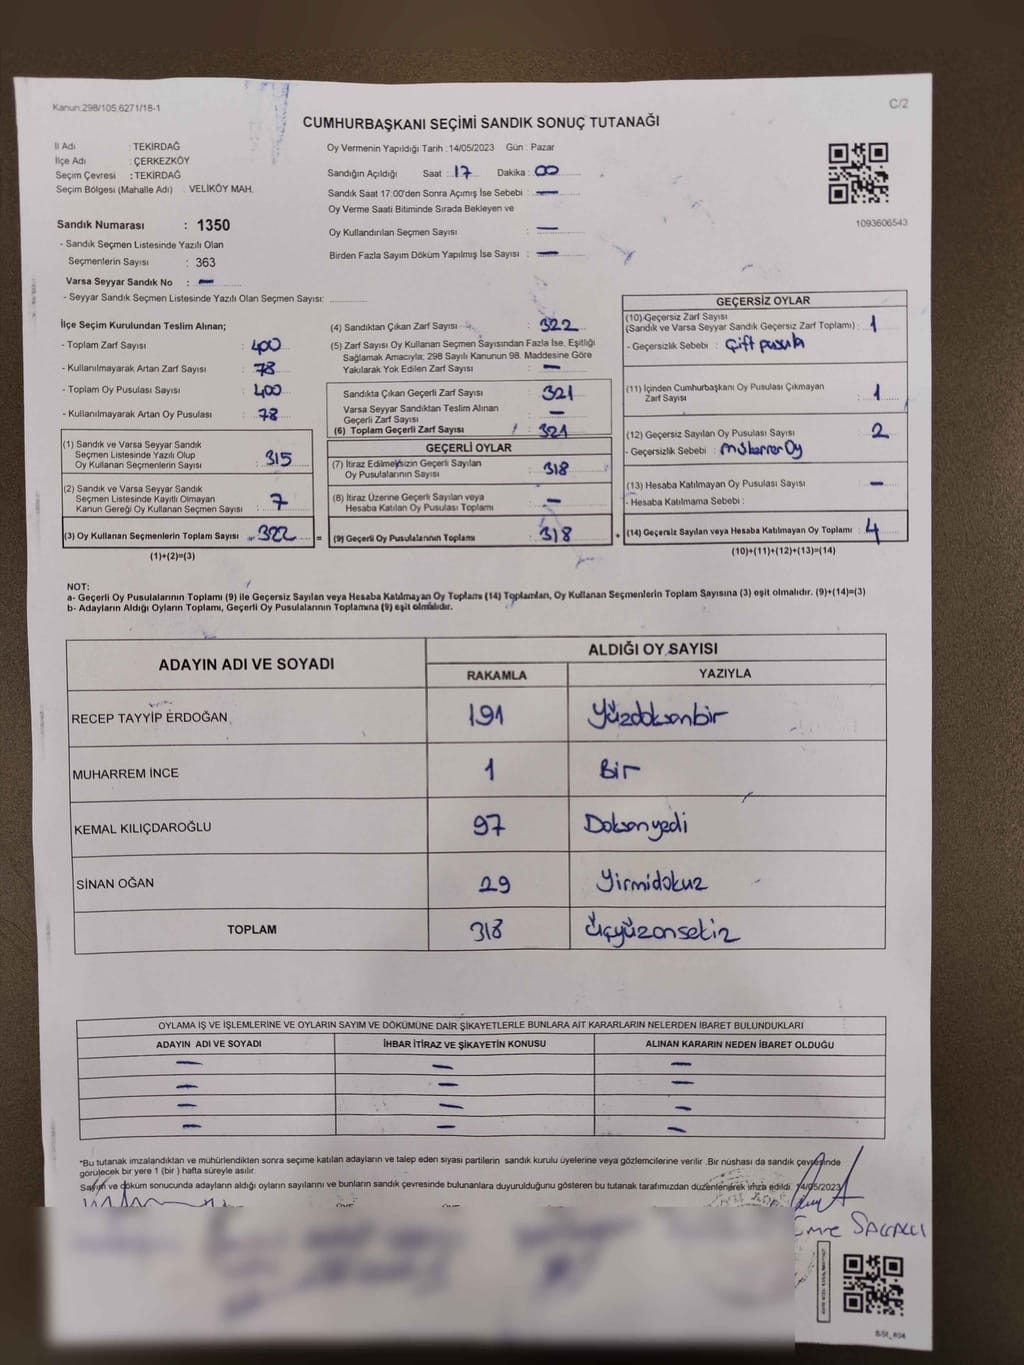 Kanun:298/105,6271/18-1
C/2
CUMHURBAŞKANI SEÇİMİ SANDIK SONUÇ TUTANAĞI
İl Adı : TEKİRDAĞ
İlçe Adı : ÇERKEZKÖY
Seçim Çevresi : TEKİRDAĞ
Seçim Bölgesi (Mahalle Adı) : VELİKÖY MAH.
Oy Vermenin Yapıldığı Tarih : 14/05/2023 Gün : Pazar
Sandığın Açıldığı Saat : 17 Dakika : 00
Sandık Saat 17:00'den Sonra Açımış İse Sebebi : —
Oy Verme Saati Bitiminde Sırada Bekleyen ve
Oy Kullandırılan Seçmen Sayısı : —
Birden Fazla Sayım Döküm Yapılmış İse Sayısı : —
1093606543
Sandık Numarası : 1350
- Sandık Seçmen Listesinde Yazılı Olan
Seçmenlerin Sayısı : 363
Varsa Seyyar Sandık No : —
- Seyyar Sandık Seçmen Listesinde Yazılı Olan Seçmen Sayısı:
İlçe Seçim Kurulundan Teslim Alınan;
- Toplam Zarf Sayısı : 400
- Kullanılmayarak Artan Zarf Sayısı : 78
- Toplam Oy Pusulası Sayısı : 400
- Kullanılmayarak Artan Oy Pusulası : 78
(1) Sandık ve Varsa Seyyar Sandık
Seçmen Listesinde Yazılı Olup
Oy Kullanan Seçmenlerin Sayısı : 315
(2) Sandık ve Varsa Seyyar Sandık
Seçmen Listesinde Kayıtlı Olmayan
Kanun Gereği Oy Kullanan Seçmen Sayısı : 7
(3) Oy Kullanan Seçmenlerin Toplam Sayısı : 322 =
(1)+(2)=(3)
(4) Sandıktan Çıkan Zarf Sayısı : 322
(5) Zarf Sayısı Oy Kullanan Seçmen Sayısından Fazla İse, Eşitliği
Sağlamak Amacıyla; 298 Sayılı Kanunun 98. Maddesine Göre
Yakılarak Yok Edilen Zarf Sayısı : —
Sandıkta Çıkan Geçerli Zarf Sayısı : 321
Varsa Seyyar Sandıktan Teslim Alınan
Geçerli Zarf Sayısı : —
(6) Toplam Geçerli Zarf Sayısı : 321
GEÇERLİ OYLAR
(7) İtiraz Edilmeksizin Geçerli Sayılan
Oy Pusulalarının Sayısı : 318
(8) İtiraz Üzerine Geçerli Sayılan veya
Hesaba Katılan Oy Pusulaları Toplamı : —
(9) Geçerli Oy Pusulalarının Toplamı : 318 +
GEÇERSİZ OYLAR
(10) Geçersiz Zarf Sayısı
(Sandık ve Varsa Seyyar Sandık Geçersiz Zarf Toplamı) : 1
- Geçersizlik Sebebi : Çift pusula
(11) İçinden Cumhurbaşkanı Oy Pusulası Çıkmayan
Zarf Sayısı : 1
(12) Geçersiz Sayılan Oy Pusulası Sayısı : 2
- Geçersizlik Sebebi : mükerrer Oy
(13) Hesaba Katılmayan Oy Pusulası Sayısı : —
- Hesaba Katılmama Sebebi :
(14) Geçersiz Sayılan veya Hesaba Katılmayan Oy Toplamı : 4
(10)+(11)+(12)+(13)=(14)
NOT:
a- Geçerli Oy Pusulalarının Toplamı (9) ile Geçersiz Sayılan veya Hesaba Katılmayan Oy Toplamı (14) Toplamları, Oy Kullanan Seçmenlerin Toplam Sayısına (3) eşit olmalıdır. (9)+(14)=(3)
b- Adayların Aldığı Oyların Toplamı, Geçerli Oy Pusulalarının Toplamına (9) eşit olmalıdır.
ADAYIN ADI VE SOYADI
ALDIĞI OY SAYISI
RAKAMLA YAZIYLA
RECEP TAYYİP ERDOĞAN 191 Yüzdoksanbir
MUHARREM İNCE 1 Bir
KEMAL KILIÇDAROĞLU 97 Doksanyedi
SİNAN OĞAN 29 Yirmidokuz
TOPLAM 318 Üçyüzonsekiz
OYLAMA İŞ VE İŞLEMLERİNE VE OYLARIN SAYIM VE DÖKÜMÜNE DAİR ŞİKAYETLERLE BUNLARA AİT KARARLARIN NELERDEN İBARET BULUNDUKLARI
ADAYIN ADI VE SOYADI İHBAR İTİRAZ VE ŞİKAYETİN KONUSU ALINAN KARARIN NEDEN İBARET OLDUĞU
— — —
— — —
— — —
— — —
*Bu tutanak imzalandıktan ve mühürlendikten sonra seçime katılan adayların ve talep eden siyasi partilerin sandık kurulu üyelerine veya gözlemcilerine verilir .Bir nüshası da sandık çevresinde
görülecek bir yere 1 (bir ) hafta süreyle asılır.
Sayım ve döküm sonucunda adayların aldığı oyların sayılarını ve bunların sandık çevresinde bulunanlara duyurulduğunu gösteren bu tutanak tarafımızdan düzenlenerek imza edildi. 14/05/2023
Emre